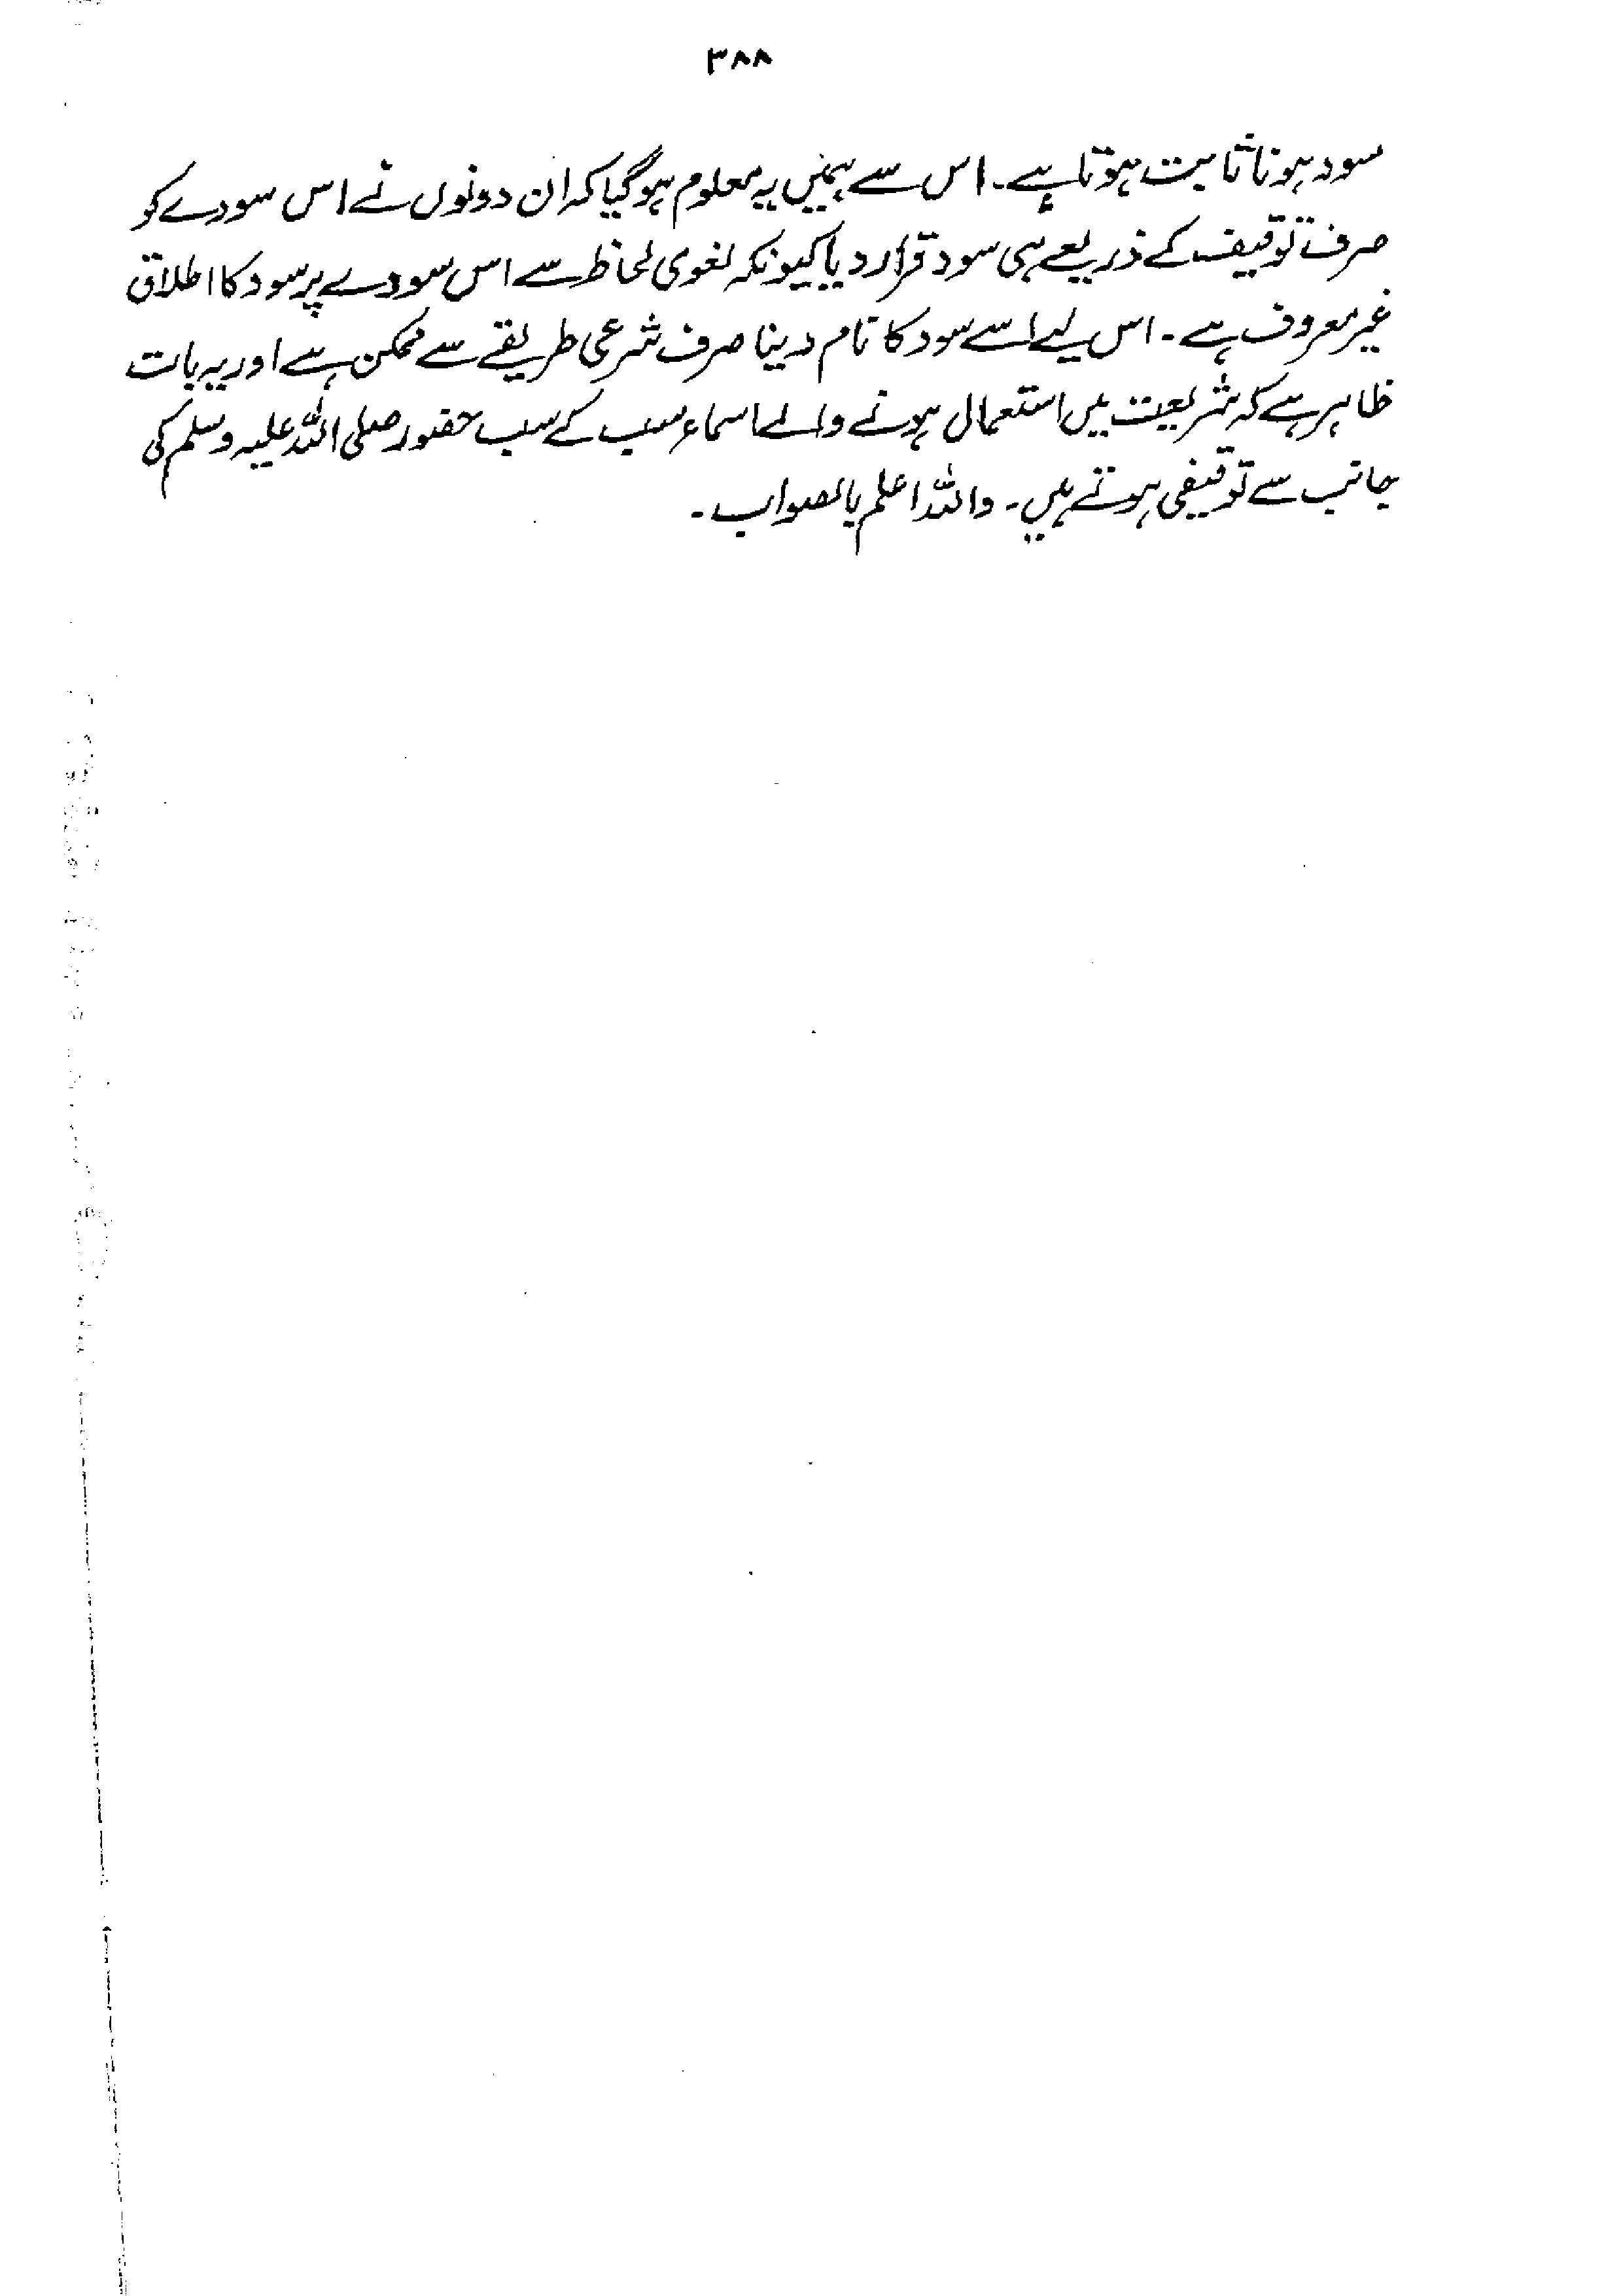 ۳۸۸
سود ہونا ثابت ہوتا ہے۔ اس سے ہمیں یہ معلوم ہوگیا کہ ان دونوں نے اس سودے کو
صرف توقیف کے ذریعے ہی سود قرار دیا کیونکہ لغوی لحاظ سے اس سودے پر سود کا اطلاق
غیر معروف ہے۔ اس لیے اسے سود کا نام دینا صرف شرعی طریقے سے ممکن ہے اور یہ بات
ظاہر ہے کہ شریعت میں استعمال ہونے والے اسماء سب کے سب حضور صلی اللہ علیہ وسلم کی
جانب سے توقیفی ہوتے ہیں۔ واللہ اعلم بالصواب۔